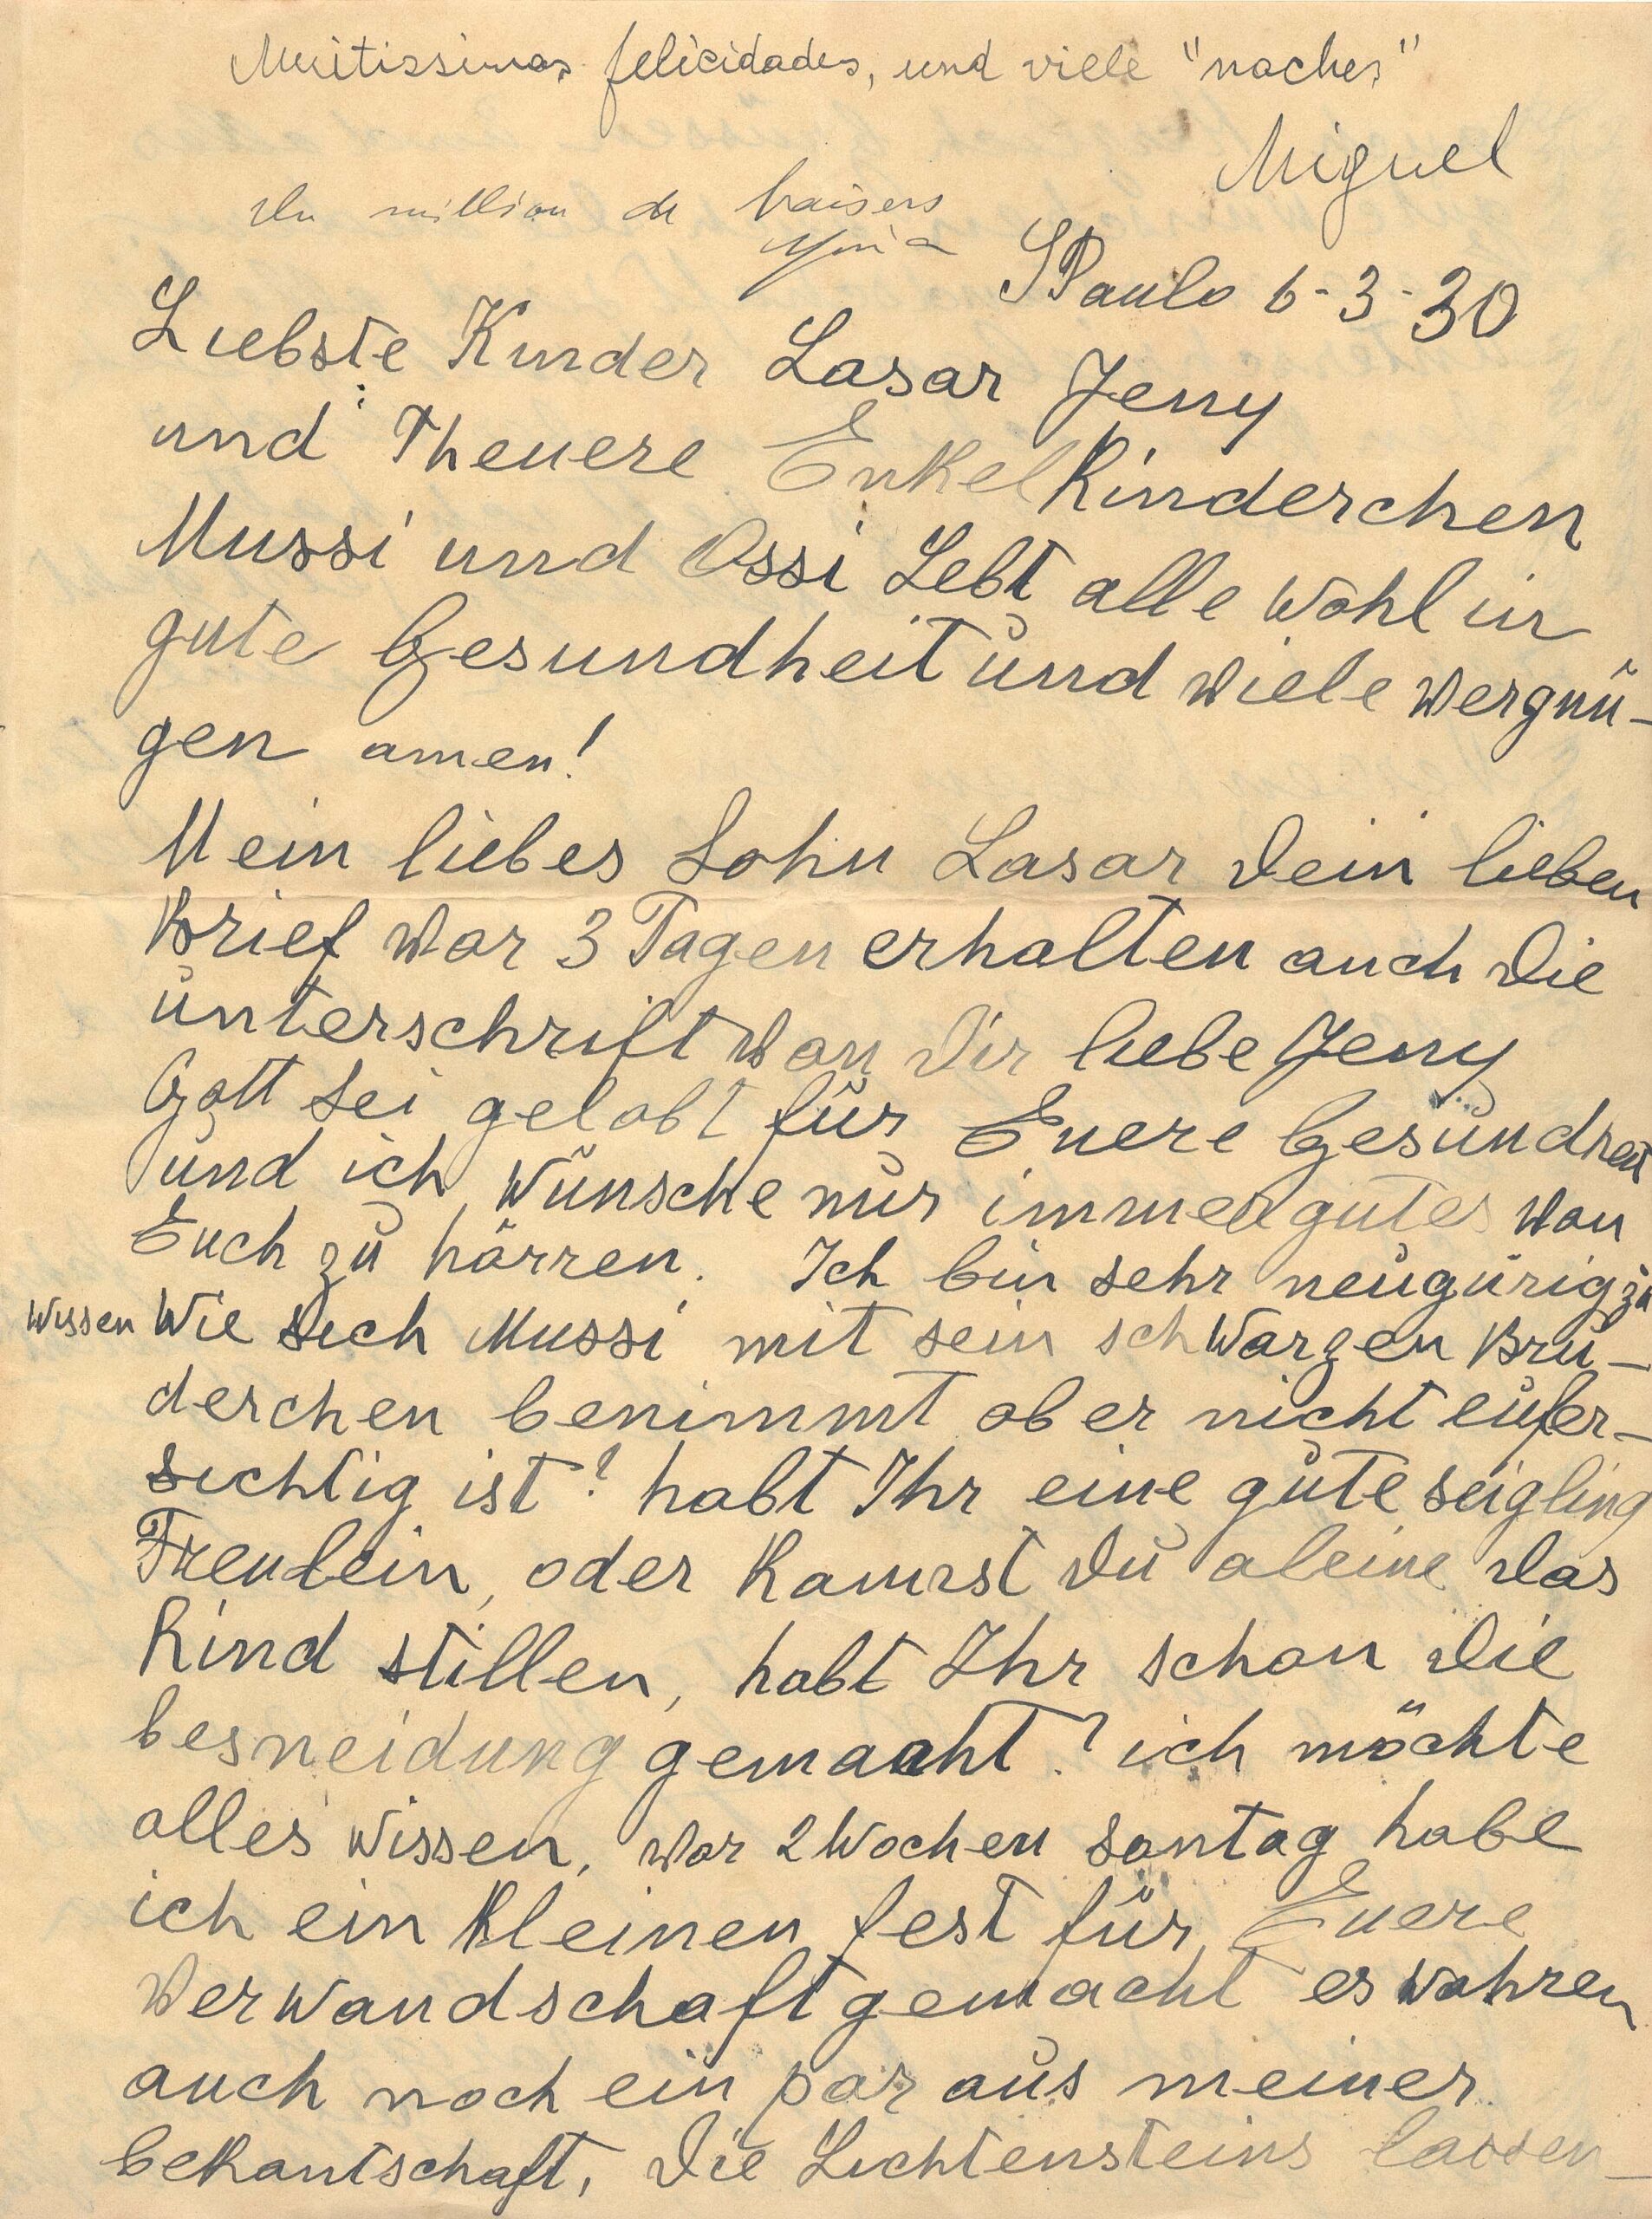 Muitissimas felicidades, und viele "naches"
Miguel
Un million de baisers
SPaulo 6-3-30
Liebste Kinder Lasar Jeny
und Theuere Enkelkinderchen
Mussi und Ossi Lebt alle wohl in
gute Gesundheit und wiele wergnü-
gen amen!
Mein liebes Sohn Lasar Dein lieben
Brief wor 3 Tagen erhalten auch Die
unterschrift won Dir liebe Jeny
Gott sei gelobt für Euere Gesundheit
und ich wünsche nur immer gutes won
Euch zu hörren. Ich bin sehr neugürig zu
wissen Wie sich Mussi mit sein schwarzen Brü-
derchen benimmt ob er nicht eufer-
sichtig ist? habt Ihr eine gute seigling
Freulein, oder kannst Du aleine Das
Kind stillen, habt Ihr schon Die
besneidung gemacht? ich möchte
alles wissen, wor 2 Wochen sontag habe
ich ein kleinen fest für Euere
Werwandschaft gemacht es wahren
auch noch ein par aus meiner
bekantschaft, Die Lichtensteins lassen-